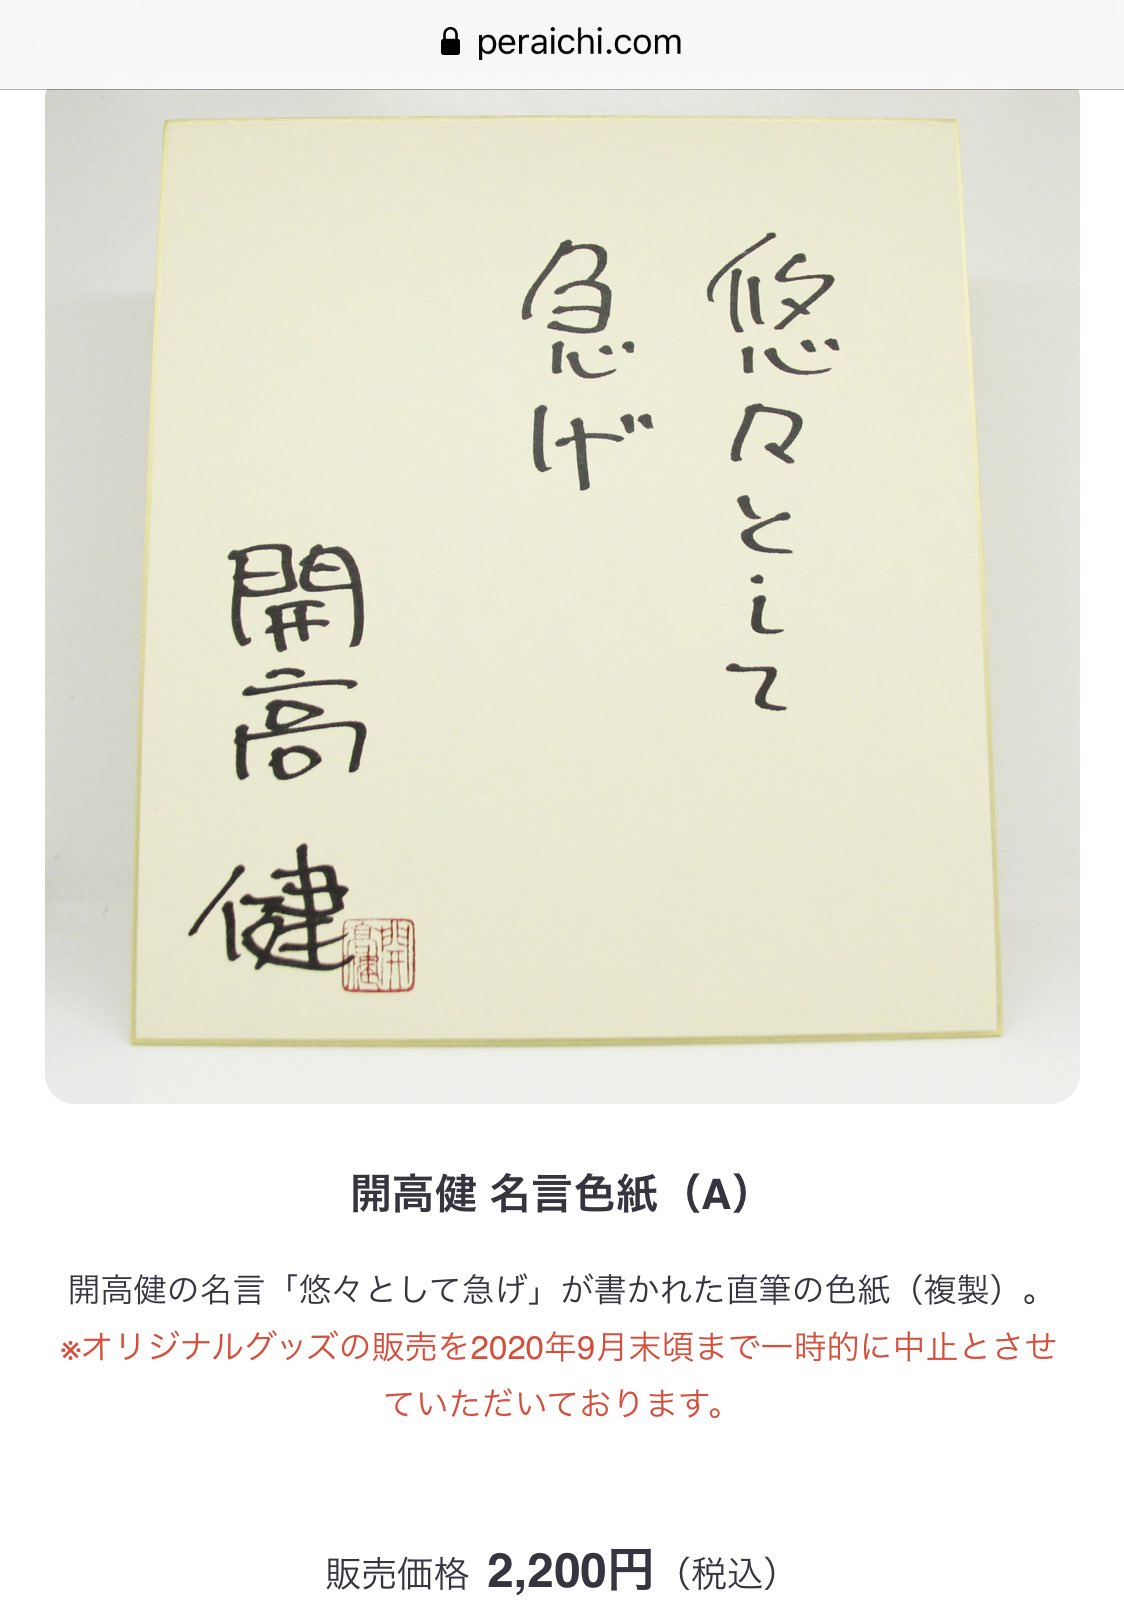 peraichi.com
悠々として
急げ
開高健
開高健
開高健 名言色紙（A）
開高健の名言「悠々として急げ」が書かれた直筆の色紙（複製）。
※オリジナルグッズの販売を2020年9月末頃まで一時的に中止とさせ
ていただいております。
販売価格 2,200円（税込）